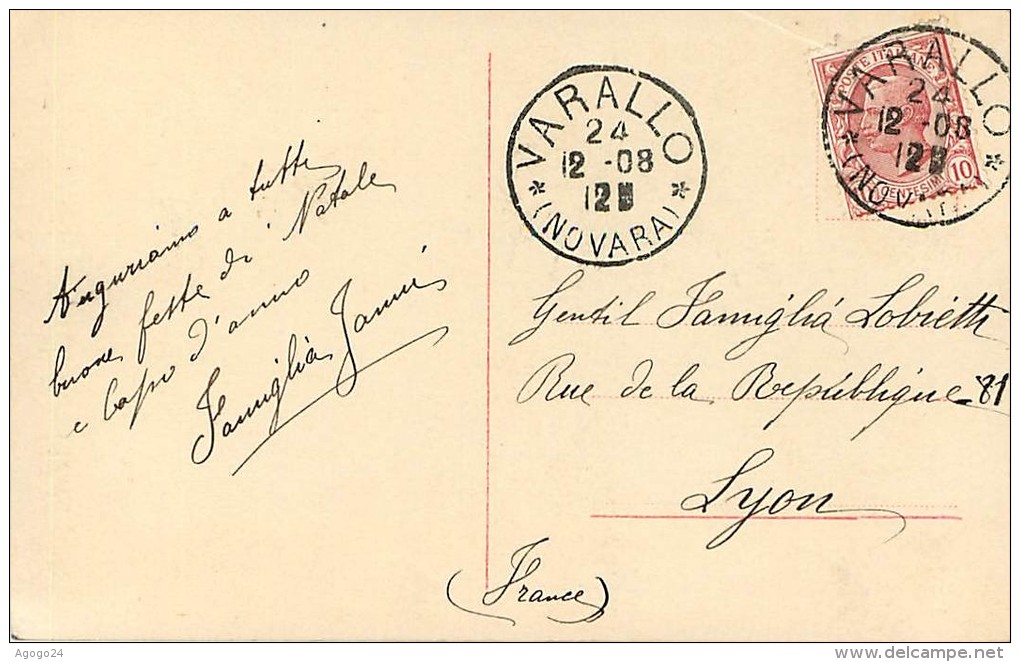 Auguriamo a tutti
buone feste di Natale
e Capo d'anno
Famiglia
VARALLO
24
12 -08
12
* (NOVARA) *
POSTE ITALIANE
10
CENTESIMI
VARALLO
24
12 -08
12
* (NOVARA) *
Gentil Famiglia Lobietti
Rue de la République 81
Lyon
(France)
Agogo24
delcampe.net